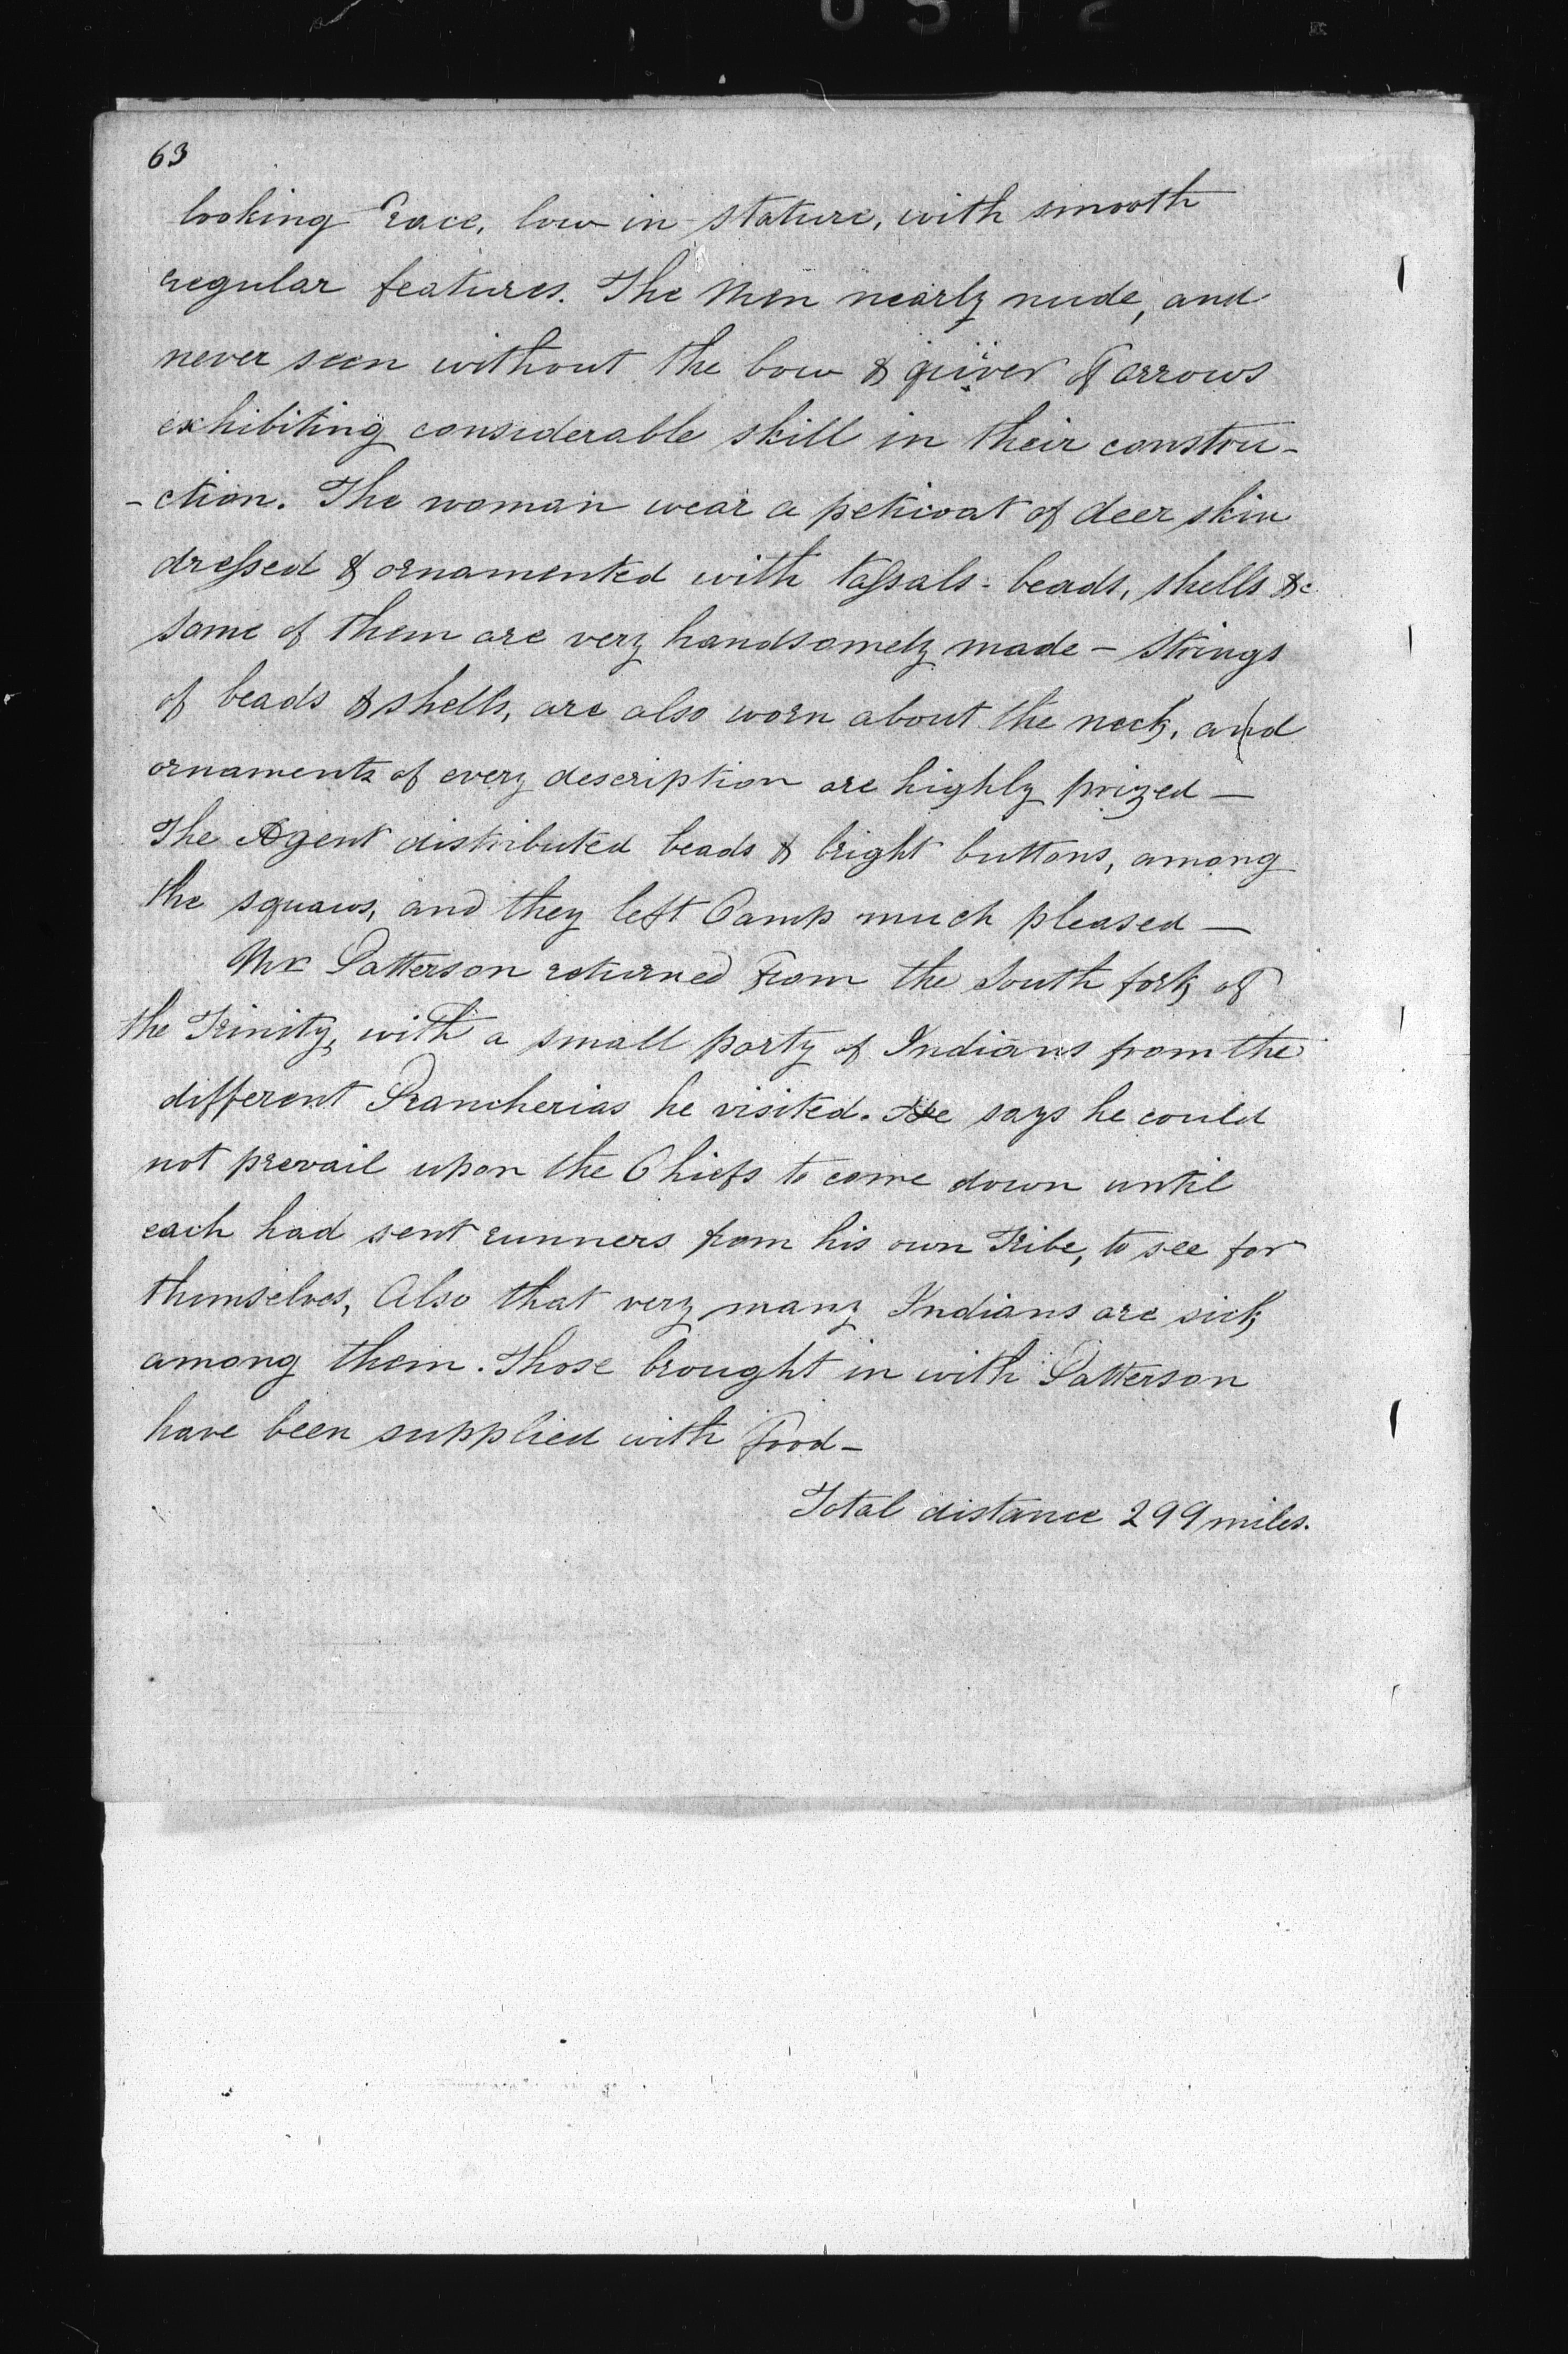 63
looking race, low in stature, with smooth
regular features. The Men nearly nude, and
never seen without the bow & quiver of arrows
exhibiting considerable skill in their constru-
-ction. The woman wear a peticoat of deer skin
dressed & ornamented with tassals - beads, shells &c
some of them are very handsomely made - Strings
of beads & shells, are also worn about the neck, and
ornaments of every description are highly prized -
The Agent distributed beads & bright buttons, among
the squaws, and they left Camp much pleased -
Mr Patterson returned from the South fork of
the Trinity, with a small party of Indians from the
different Rancherias he visited. He says he could
not prevail upon the Chiefs to come down until
each had sent runners from his own Tribe, to see for
themselves, Also that very many Indians are sick
among them. Those brought in with Patterson
have been supplied with Food -
Total distance 299 miles.